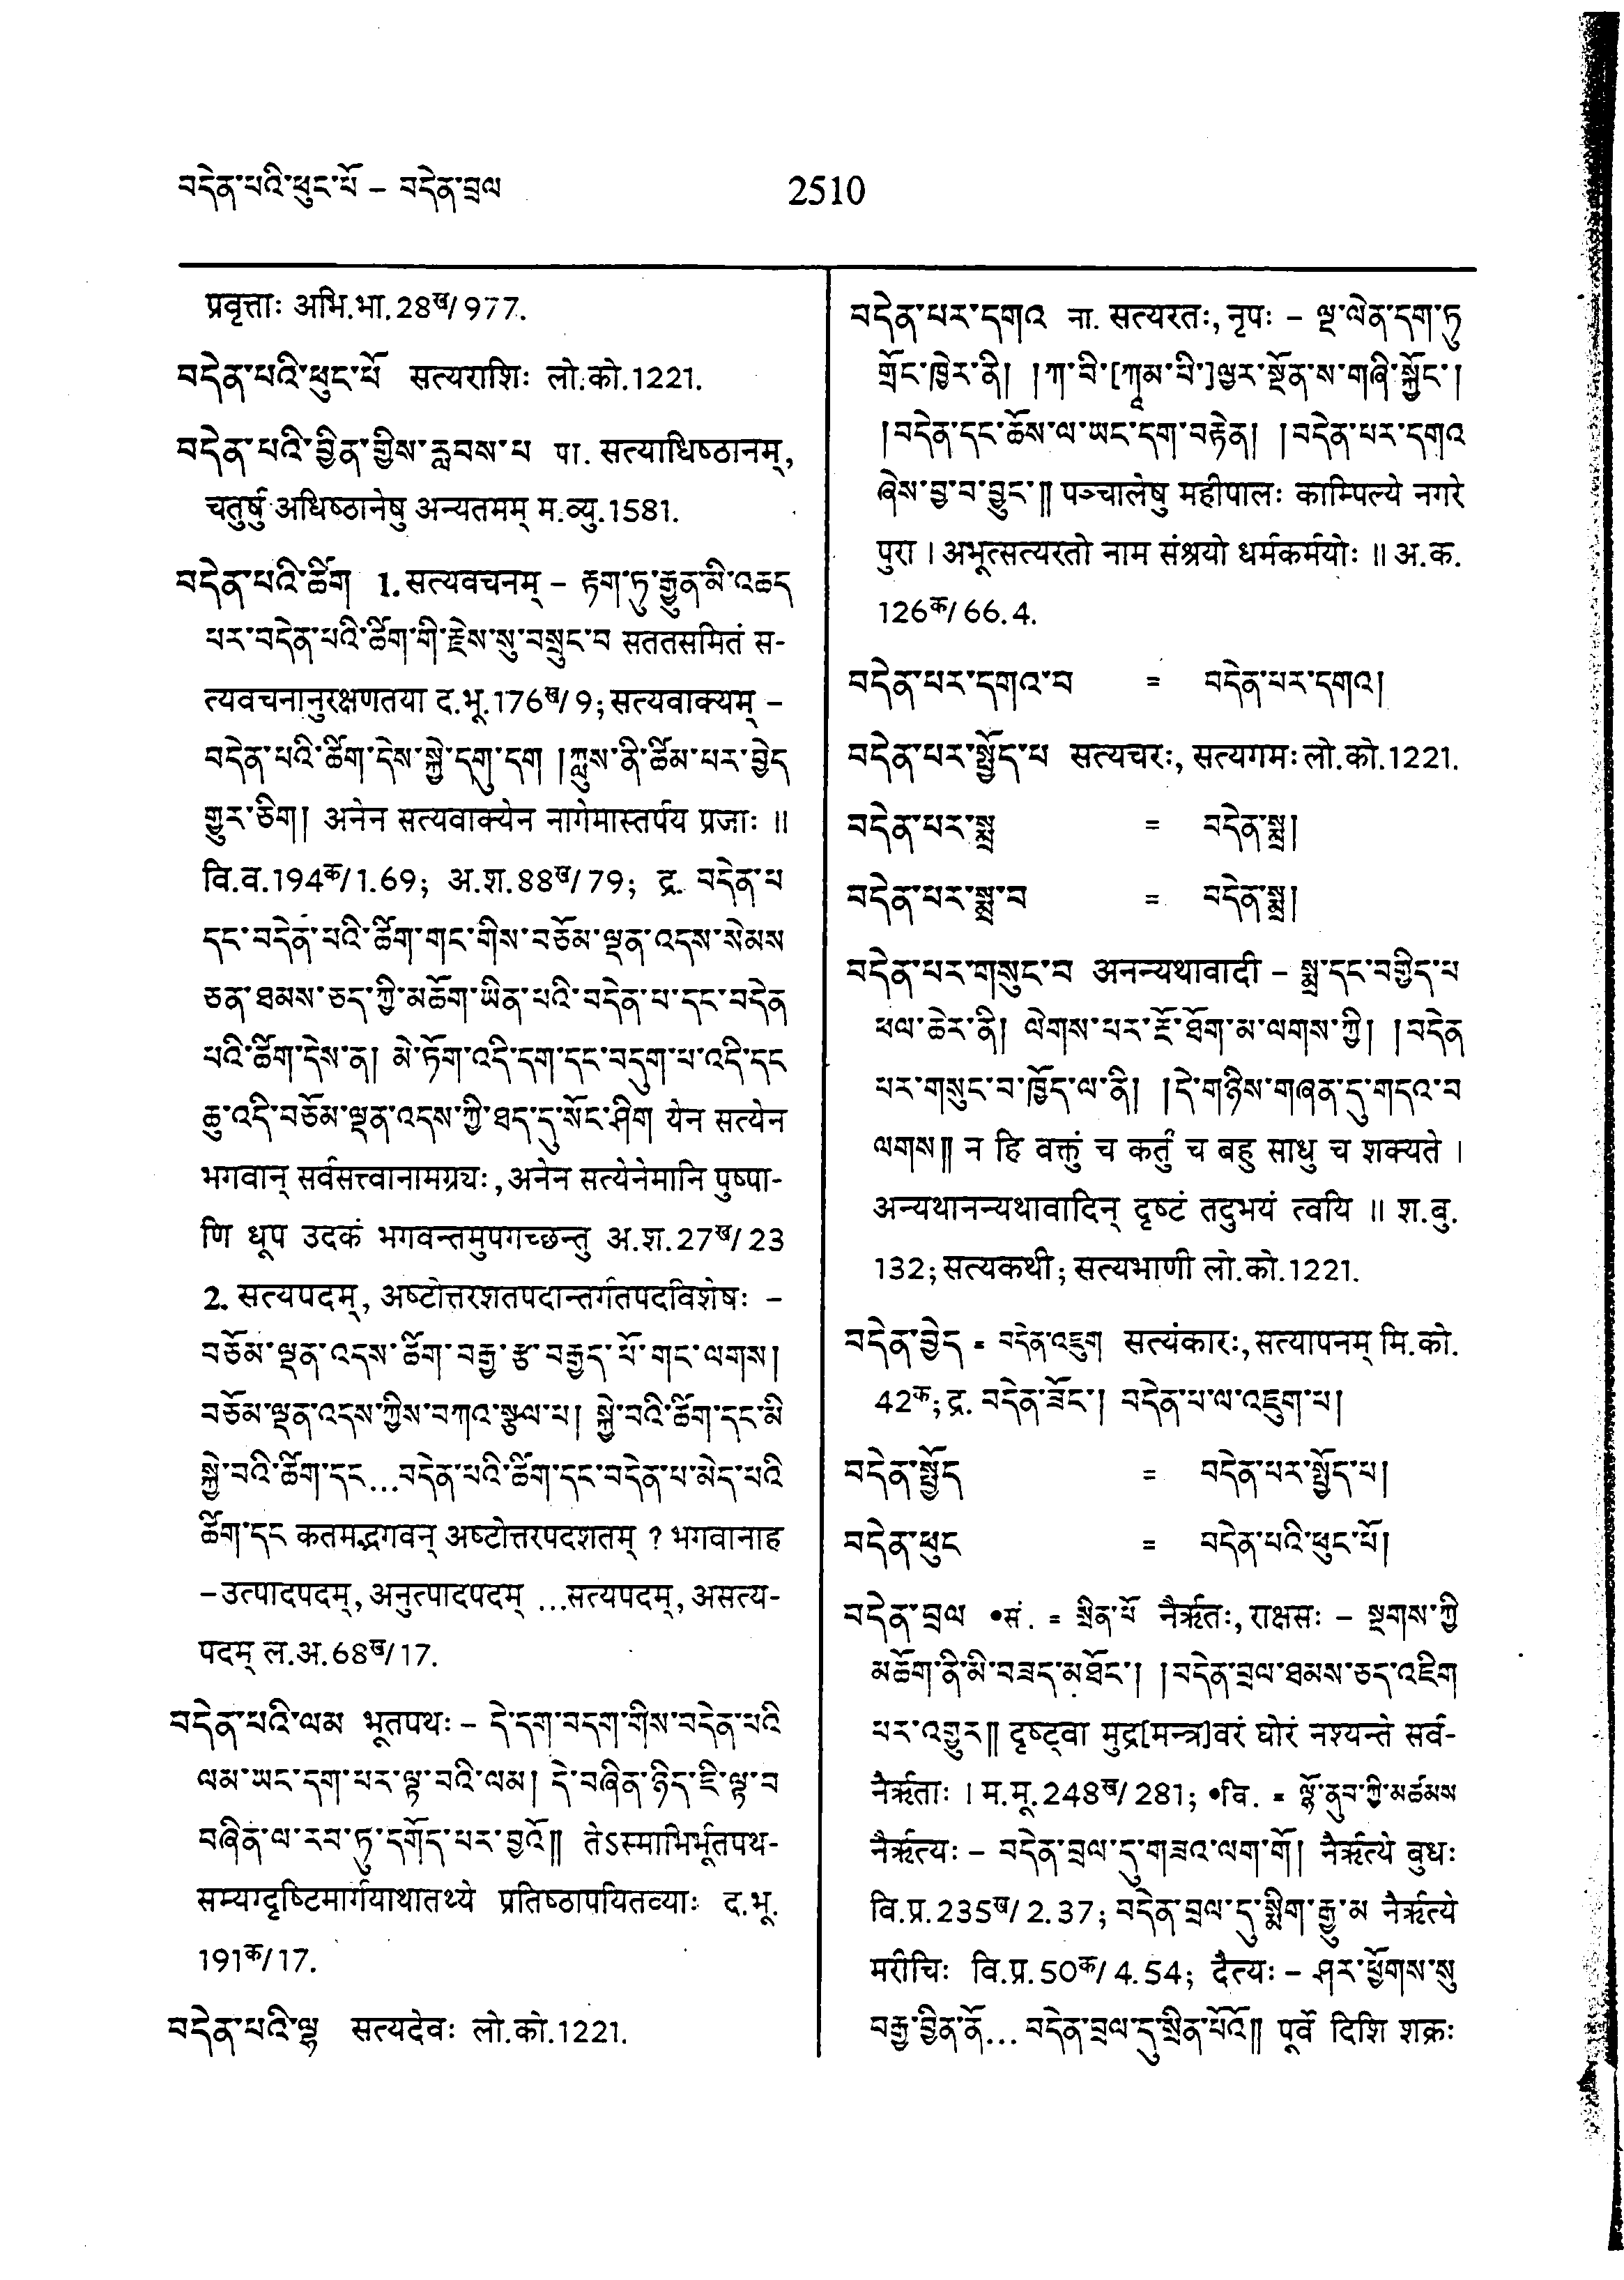 བདེན་པའི་ཕུང་པོ – བདེན་བྲལ
2510
प्रवृत्ताः अभि.भा.28ख/977.
བདེན་པའི་ཕུང་པོ सत्यराशिः लो.को.1221.
བདེན་པའི་བྱིན་གྱིས་རླབས་པ पा. सत्याधिष्ठानम्,
चतुर्षु अधिष्ठानेषु अन्यतमम् म.व्यु.1581.
བདེན་པའི་ཚིག 1. सत्यवचनम् – རྟག་ཏུ་རྒྱུན་མི་འཆད
པར་བདེན་པའི་ཚིག་གི་རྗེས་སུ་བསྲུང་བ सततसमितं स-
त्यवचनानुरक्षणतया द.भू.176ख/9; सत्यवाक्यम् –
བདེན་པའི་ཚིག་དེས་སྐྱེ་དགུ་དག །ཀླུས་ནི་ཚིམ་པར་བྱེད
གྱུར་ཅིག། अनेन सत्यवाक्येन नागेमास्तर्पय प्रजाः ॥
वि.व.194क/1.69; अ.श.88ख/79; द्र. བདེན་པ
དང་བདེན་པའི་ཚིག་གང་གིས་བཅོམ་ལྡན་འདས་སེམས
ཅན་ཐམས་ཅད་ཀྱི་མཆོག་ཡིན་པའི་བདེན་པ་དང་བདེན
པའི་ཚིག་དེས་ན། མེ་ཏོག་འདི་དག་དང་བདུག་པ་འདི་དང
ཆུ་འདི་བཅོམ་ལྡན་འདས་ཀྱི་ཐད་དུ་སོང་ཤིག येन सत्येन
भगवान् सर्वसत्त्वानामग्र्यः, अनेन सत्येनेमानि पुष्पा-
णि धूप उदकं भगवन्तमुपगच्छन्तु अ.श.27ख/23
2. सत्यपदम्, अष्टोत्तरशतपदान्तर्गतपदविशेषः –
བཅོམ་ལྡན་འདས་ཚིག་བརྒྱ་རྩ་བརྒྱད་པོ་གང་ལགས།
བཅོམ་ལྡན་འདས་ཀྱིས་བཀའ་སྩལ་པ། སྐྱེ་བའི་ཚིག་དང་མི
སྐྱེ་བའི་ཚིག་དང...བདེན་པའི་ཚིག་དང་བདེན་པ་མེད་པའི
ཚིག་དང कतमद्भगवन् अष्टोत्तरपदशतम् ? भगवानाह
– उत्पादपदम्, अनुत्पादपदम् ...सत्यपदम्, असत्य-
पदम् ल.अ.68ख/17.
བདེན་པའི་ལམ भूतपथः – དེ་དག་བདག་གིས་བདེན་པའི
ལམ་ཡང་དག་པར་ལྟ་བའི་ལམ། དེ་བཞིན་ཉིད་ཇི་ལྟ་བ
བཞིན་ལ་རབ་ཏུ་དགོད་པར་བྱའོ།། तेऽस्माभिर्भूतपथ-
सम्यग्दृष्टिमार्गयाथातथ्ये प्रतिष्ठापयितव्याः द.भू.
191क/17.
བདེན་པའི་ལྷ सत्यदेवः लो.को.1221.
བདེན་པར་དགའ ना. सत्यरतः, नृपः – ལྔ་ལེན་དག་ཏུ
གྲོང་ཁྱེར་ནི། །ཀ་བི་[ཀཱམ་པི་]ལྱར་སྔོན་ས་གཞི་སྐྱོང་།
།བདེན་དང་ཆོས་ལ་ཡང་དག་བརྟེན། །བདེན་པར་དགའ
ཞེས་བྱ་བ་བྱུང་།། पञ्चालेषु महीपालः काम्पिल्ये नगरे
पुरा । अभूत्सत्यरतो नाम संश्रयो धर्मकर्मयोः ॥ अ.क.
126क/66.4.
བདེན་པར་དགའ་བ = བདེན་པར་དགའ།
བདེན་པར་སྤྱོད་པ सत्यचरः, सत्यगमः लो.को.1221.
བདེན་པར་སྨྲ = བདེན་སྨྲ།
བདེན་པར་སྨྲ་བ = བདེན་སྨྲ།
བདེན་པར་གསུང་བ अनन्यथावादी – སྨྲ་དང་བགྱིད་པ
ཕལ་ཆེར་ནི། ལེགས་པར་ངོ་ཐོག་མ་ལགས་ཀྱི། །བདེན
པར་གསུང་བ་ཁྱོད་ལ་ནི། །དེ་གཉིས་གཞན་དུ་གདའ་བ
ལགས།། न हि वक्तुं च कर्तुं च बहु साधु च शक्यते ।
अन्यथानन्यथावादिन् दृष्टं तदुभयं त्वयि ॥ श.बु.
132; सत्यकथी; सत्यभाणी लो.को.1221.
བདེན་བྱེད = བདེན་འཇུག सत्यंकारः, सत्यापनम् मि.को.
42क; द्र. བདེན་ཟོང་། བདེན་པ་ལ་འཇུག་པ།
བདེན་སྤྱོད = བདེན་པར་སྤྱོད་པ།
བདེན་ཕུང = བདེན་པའི་ཕུང་པོ།
བདེན་བྲལ •सं. = སྲིན་པོ नैर्ऋतः, राक्षसः – སྔགས་ཀྱི
མཆོག་ནི་མི་བཟད་མཐོང་། །བདེན་བྲལ་ཐམས་ཅད་འཇིག
པར་འགྱུར།། दृष्ट्वा मुद्र[मन्त्र]वरं घोरं नश्यन्ते सर्व-
नैर्ऋताः । म.मू.248ख/281; •वि. = ལྷོ་ནུབ་ཀྱི་མཚམས
नैर्ऋत्यः – བདེན་བྲལ་དུ་གཟའ་ལག་གོ། नैर्ऋत्ये बुधः
वि.प्र.235ख/2.37; བདེན་བྲལ་དུ་སྨིག་རྒྱུ་མ नैर्ऋत्ये
मरीचिः वि.प्र.50क/4.54; दैत्यः – ཤར་ཕྱོགས་སུ
བརྒྱ་བྱིན་ནོ... བདེན་བྲལ་དུ་སྲིན་པོའོ།། पूर्वे दिशि शक्रः